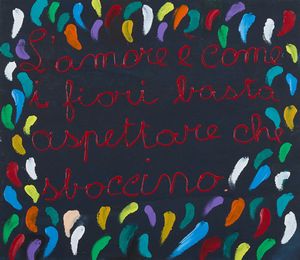 L'amore è come
i fiori basta
aspettare che
sboccino